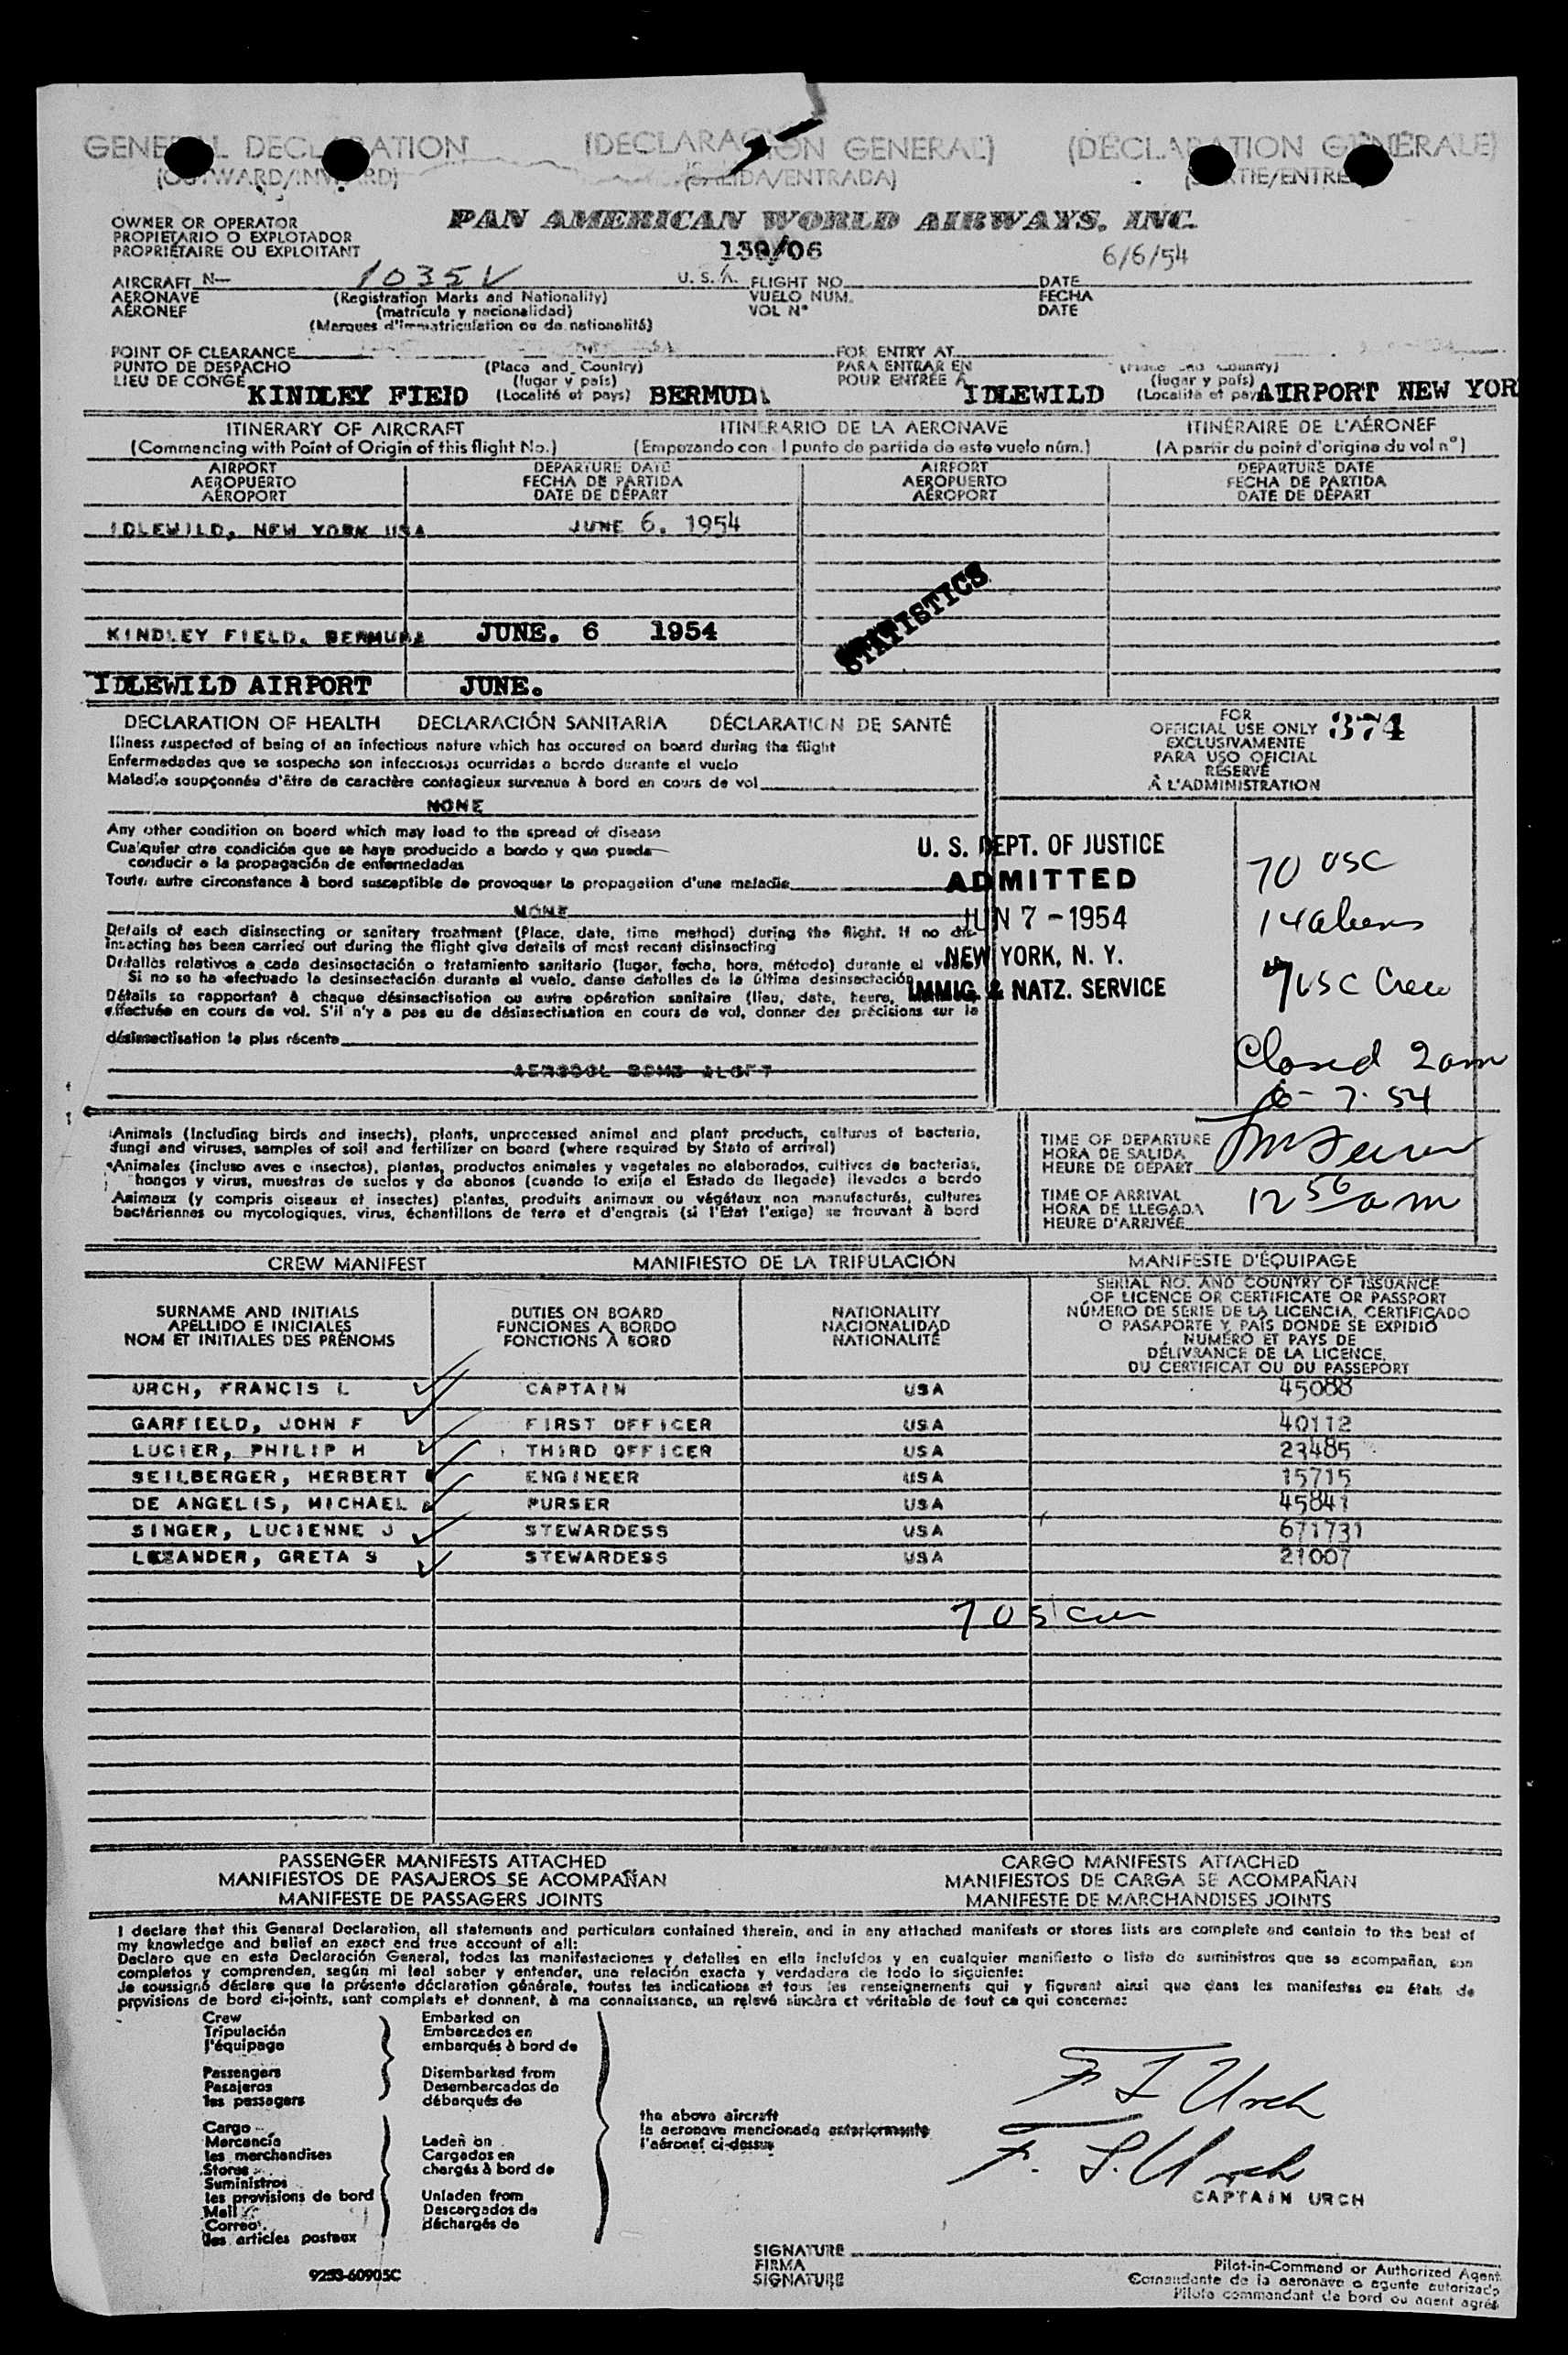 GENERAL DECLARATION (DECLARACION GENERAL) (DÉCLARATION GÉNÉRALE)
(OUTWARD/INWARD) (SALIDA/ENTRADA) (SORTIE/ENTRÉE)
OWNER OR OPERATOR
PROPIETARIO O EXPLOTADOR
PROPRIÉTAIRE OU EXPLOITANT
PAN AMERICAN WORLD AIRWAYS, INC.
139/06 6/6/54
AIRCRAFT N— 1035V U. S. A. FLIGHT NO. DATE
AERONAVE (Registration Marks and Nationality) VUELO NUM. FECHA
AÉRONEF (matrícula y nacionalidad) VOL N° DATE
(Marques d'immatriculation ou de nationalité)
POINT OF CLEARANCE FOR ENTRY AT
PUNTO DE DESPACHO (Place and Country) PARA ENTRAR EN (Place and Country)
LIEU DE CONGÉ (lugar y país) POUR ENTRÉE A (lugar y país)
KINDLEY FIELD (Localité et pays) BERMUDA IDLEWILD (Localité et pays) AIRPORT NEW YOR
ITINERARY OF AIRCRAFT ITINERARIO DE LA AERONAVE ITINÉRAIRE DE L'AÉRONEF
(Commencing with Point of Origin of this flight No.) (Empezando con el punto de partida de este vuelo núm.) (A partir du point d'origine du vol n°)
AIRPORT DEPARTURE DATE AIRPORT DEPARTURE DATE
AEROPUERTO FECHA DE PARTIDA AEROPUERTO FECHA DE PARTIDA
AÉROPORT DATE DE DÉPART AÉROPORT DATE DE DÉPART
IDLEWILD, NEW YORK USA JUNE 6. 1954
STATISTICS
KINDLEY FIELD, BERMUDA JUNE. 6 1954
IDLEWILD AIRPORT JUNE.
DECLARATION OF HEALTH DECLARACIÓN SANITARIA DÉCLARATION DE SANTÉ
Illness suspected of being of an infectious nature which has occured on board during the flight
Enfermedades que se sospecha son infecciosas ocurridas a bordo durante el vuelo
Maladie soupçonnée d'être de caractère contagieux survenue à bord en cours de vol
NONE
FOR
OFFICIAL USE ONLY 374
EXCLUSIVAMENTE
PARA USO OFICIAL
RÉSERVÉ
À L'ADMINISTRATION
Any other condition on board which may lead to the spread of disease
Cualquier otra condición que se haya producido a bordo y que pueda
conducir a la propagación de enfermedades
Toute autre circonstance à bord susceptible de provoquer la propagation d'une maladie
NONE
Details of each disinsecting or sanitary treatment (Place, date, time method) during the flight. If no dis-
insecting has been carried out during the flight give details of most recent disinsecting
Detalles relativos a cada desinsectación o tratamiento sanitario (lugar, fecha, hora, método) durante el vuelo
Si no se ha efectuado la desinsectación durante el vuelo, danse detalles de la última desinsectación
Détails se rapportant à chaque désinsectisation ou autre opération sanitaire (lieu, date, heure,
effectuée en cours de vol. S'il n'y a pas eu de désinsectisation en cours de vol, donner des précisions sur la
désinsectisation la plus récente
AEROSOL BOMB ALOFT
U. S. DEPT. OF JUSTICE
ADMITTED
JUN 7 - 1954
NEW YORK, N. Y.
IMMIG. & NATZ. SERVICE
70 USC
14 aliens
7 USC Crew
Closed 2am
6-7-54
Animals (Including birds and insects), plants, unprocessed animal and plant products, cultures of bacteria,
fungi and viruses, samples of soil and fertilizer on board (where required by State of arrival)
Animales (incluso aves e insectos), plantas, productos animales y vegetales no elaborados, cultivos de bacterias,
hongos y virus, muestras de suelos y de abonos (cuando lo exija el Estado de llegada) llevados a bordo
Animaux (y compris oiseaux et insectes) plantes, produits animaux ou végétaux non manufacturés, cultures
bactériennes ou mycologiques, virus, échantillons de terre et d'engrais (si l'Etat l'exige) se trouvant à bord
TIME OF DEPARTURE
HORA DE SALIDA
HEURE DE DÉPART
TIME OF ARRIVAL
HORA DE LLEGADA
HEURE D'ARRIVÉE
12 56 am
CREW MANIFEST MANIFIESTO DE LA TRIPULACIÓN MANIFESTE D'ÉQUIPAGE
SURNAME AND INITIALS
APELLIDO E INICIALES
NOM ET INITIALES DES PRÉNOMS
DUTIES ON BOARD
FUNCIONES A BORDO
FONCTIONS À BORD
NATIONALITY
NACIONALIDAD
NATIONALITÉ
SERIAL NO. AND COUNTRY OF ISSUANCE
OF LICENCE OR CERTIFICATE OR PASSPORT
NÚMERO DE SERIE DE LA LICENCIA, CERTIFICADO
O PASAPORTE Y PAÍS DONDE SE EXPIDIÓ
NUMÉRO ET PAYS DE
DÉLIVRANCE DE LA LICENCE,
DU CERTIFICAT OU DU PASSEPORT
URCH, FRANCIS L CAPTAIN USA 45088
GARFIELD, JOHN F FIRST OFFICER USA 40112
LUCIER, PHILIP H THIRD OFFICER USA 23485
SEILBERGER, HERBERT ENGINEER USA 15715
DE ANGELIS, MICHAEL PURSER USA 45841
SINGER, LUCIENNE J STEWARDESS USA 671731
LEZANDER, GRETA S STEWARDESS USA 21007
7 US Cr
PASSENGER MANIFESTS ATTACHED CARGO MANIFESTS ATTACHED
MANIFIESTOS DE PASAJEROS SE ACOMPAÑAN MANIFIESTOS DE CARGA SE ACOMPAÑAN
MANIFESTE DE PASSAGERS JOINTS MANIFESTE DE MARCHANDISES JOINTS
I declare that this General Declaration, all statements and particulars contained therein, and in any attached manifests or stores lists are complete and contain to the best of
my knowledge and belief an exact and true account of all:
Declaro que en esta Declaración General, todas las manifestaciones y detalles en ella incluídos y en cualquier manifiesto o lista de suministros que se acompañan, son
completos y comprenden, según mi leal saber y entender, una relación exacta y verdadera de todo lo siguiente:
Je soussigné déclare que la présente déclaration générale, toutes les indications et tous les renseignements qui y figurent ainsi que dans les manifestes ou états de
provisions de bord ci-joints, sont complets et donnent, à ma connaissance, un relevé sincère et véritable de tout ce qui concerne:
Crew Embarked on
Tripulación Embarcados en
l'équipage embarqués à bord de
Passengers Disembarked from
Pasajeros Desembarcados de
les passagers débarqués de
the above aircraft
la aeronave mencionada anteriormente
l'aéronef ci-dessus
Cargo
Mercancía Laden on
les merchandises Cargados en
Stores chargés à bord de
Suministros
les provisions de bord Unladen from
Mail Descargados de
Correo déchargés de
les articles postaux
F L Urch
F. L. Urch
CAPTAIN URCH
9253-60905C
SIGNATURE
FIRMA
SIGNATURE
Pilot-in-Command or Authorized Agent.
Comandante de la aeronave o agente autorizado
Pilote commandant de bord ou agent agréé